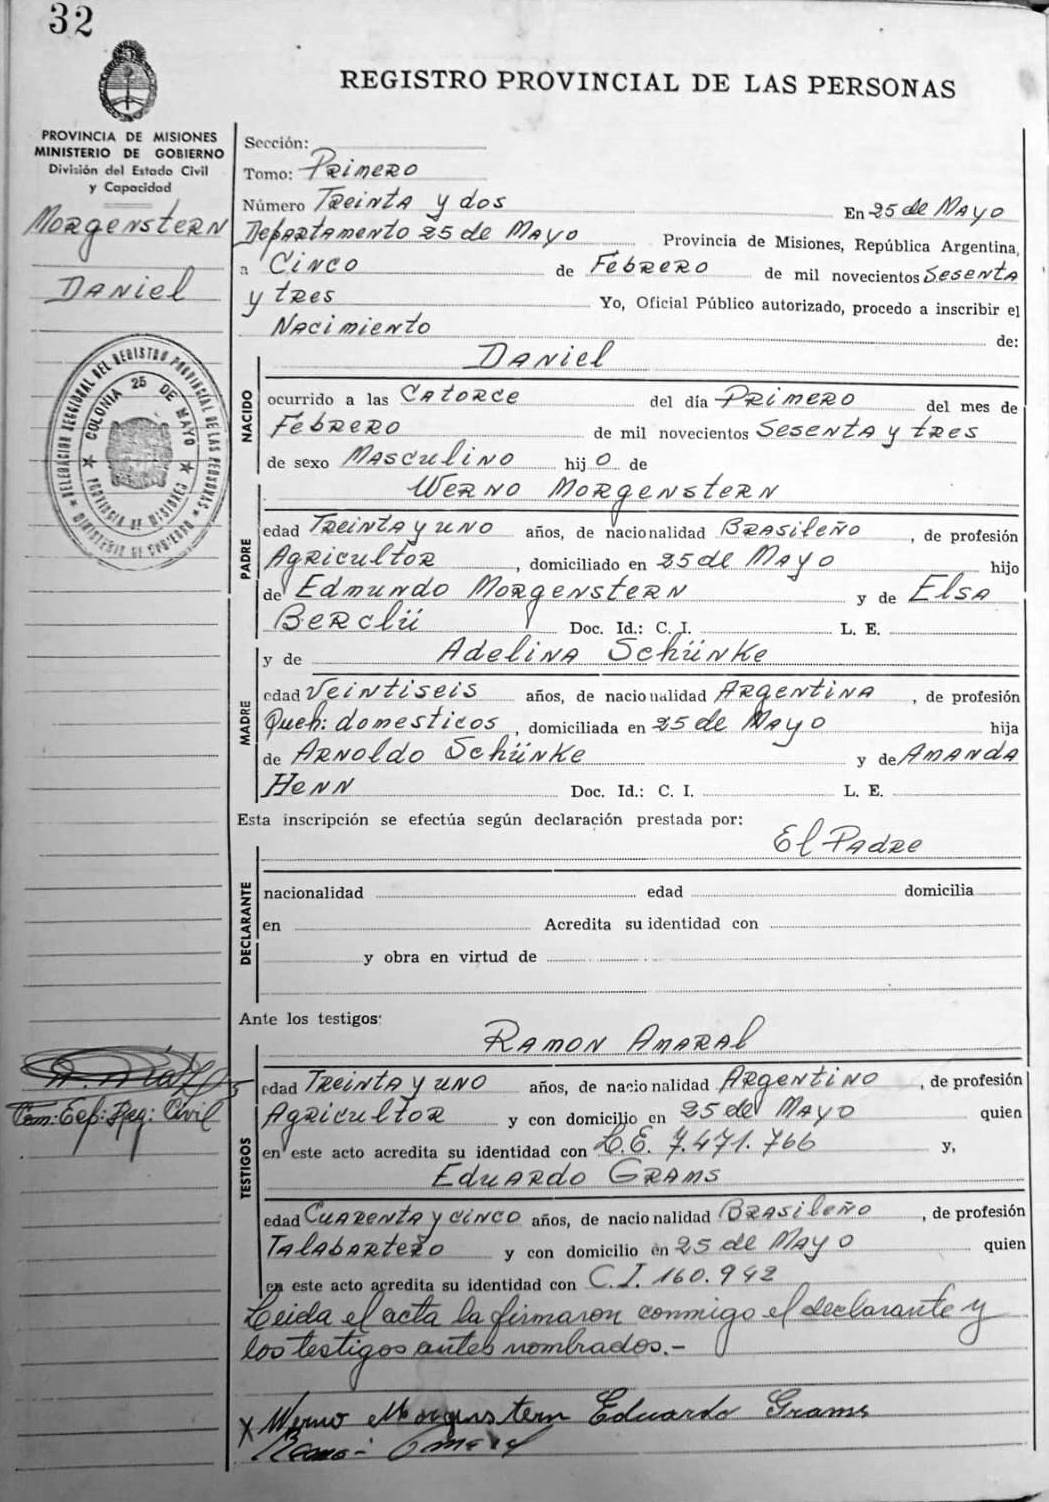 32
REGISTRO PROVINCIAL DE LAS PERSONAS
PROVINCIA DE MISIONES
MINISTERIO DE GOBIERNO
División del Estado Civil
y Capacidad
Morgenstern
Daniel
DELEGACIÓN SECCIONAL DEL REGISTRO PROVINCIAL DE LAS PERSONAS
COLONIA 25 DE MAYO
PROVINCIA DE MISIONES
MINISTERIO DE GOBIERNO
Sección:
Tomo: Primero
Número Treinta y dos En 25 de Mayo
Departamento 25 de Mayo Provincia de Misiones, República Argentina,
a Cinco de Febrero de mil novecientos Sesenta
y tres Yo, Oficial Público autorizado, procedo a inscribir el
Nacimiento de:
Daniel
NACIDO
ocurrido a las Catorce del día Primero del mes de
Febrero de mil novecientos Sesenta y tres
de sexo Masculino hijo de
Werno Morgenstern
PADRE
edad Treinta y uno años, de nacionalidad Brasileño, de profesión
Agricultor, domiciliado en 25 de Mayo hijo
de Edmundo Morgenstern y de Elsa
Berclü Doc. Id.: C. I. L. E.
y de Adelina Schünke
MADRE
edad Veintiseis años, de nacionalidad Argentina, de profesión
Queh: domesticos, domiciliada en 25 de Mayo hija
de Arnoldo Schünke y de Amanda
Henn Doc. Id.: C. I. L. E.
Esta inscripción se efectúa según declaración prestada por:
El Padre
DECLARANTE
nacionalidad edad domicilia
en Acredita su identidad con
y obra en virtud de
Ante los testigos:
Ramon Amaral
TESTIGOS
edad Treinta y uno años, de nacionalidad Argentino, de profesión
Agricultor y con domicilio en 25 de Mayo quien
en este acto acredita su identidad con L.E. 7.471.766 y,
Eduardo Grams
edad Cuarenta y cinco años, de nacionalidad Brasileño, de profesión
Talabartero y con domicilio en 25 de Mayo quien
en este acto acredita su identidad con C.I. 160.942
Leida el acta la firmaron conmigo el declarante y
los testigos antes nombrados.-
X Werno Morgenstern Eduardo Grams
Reg: Civil